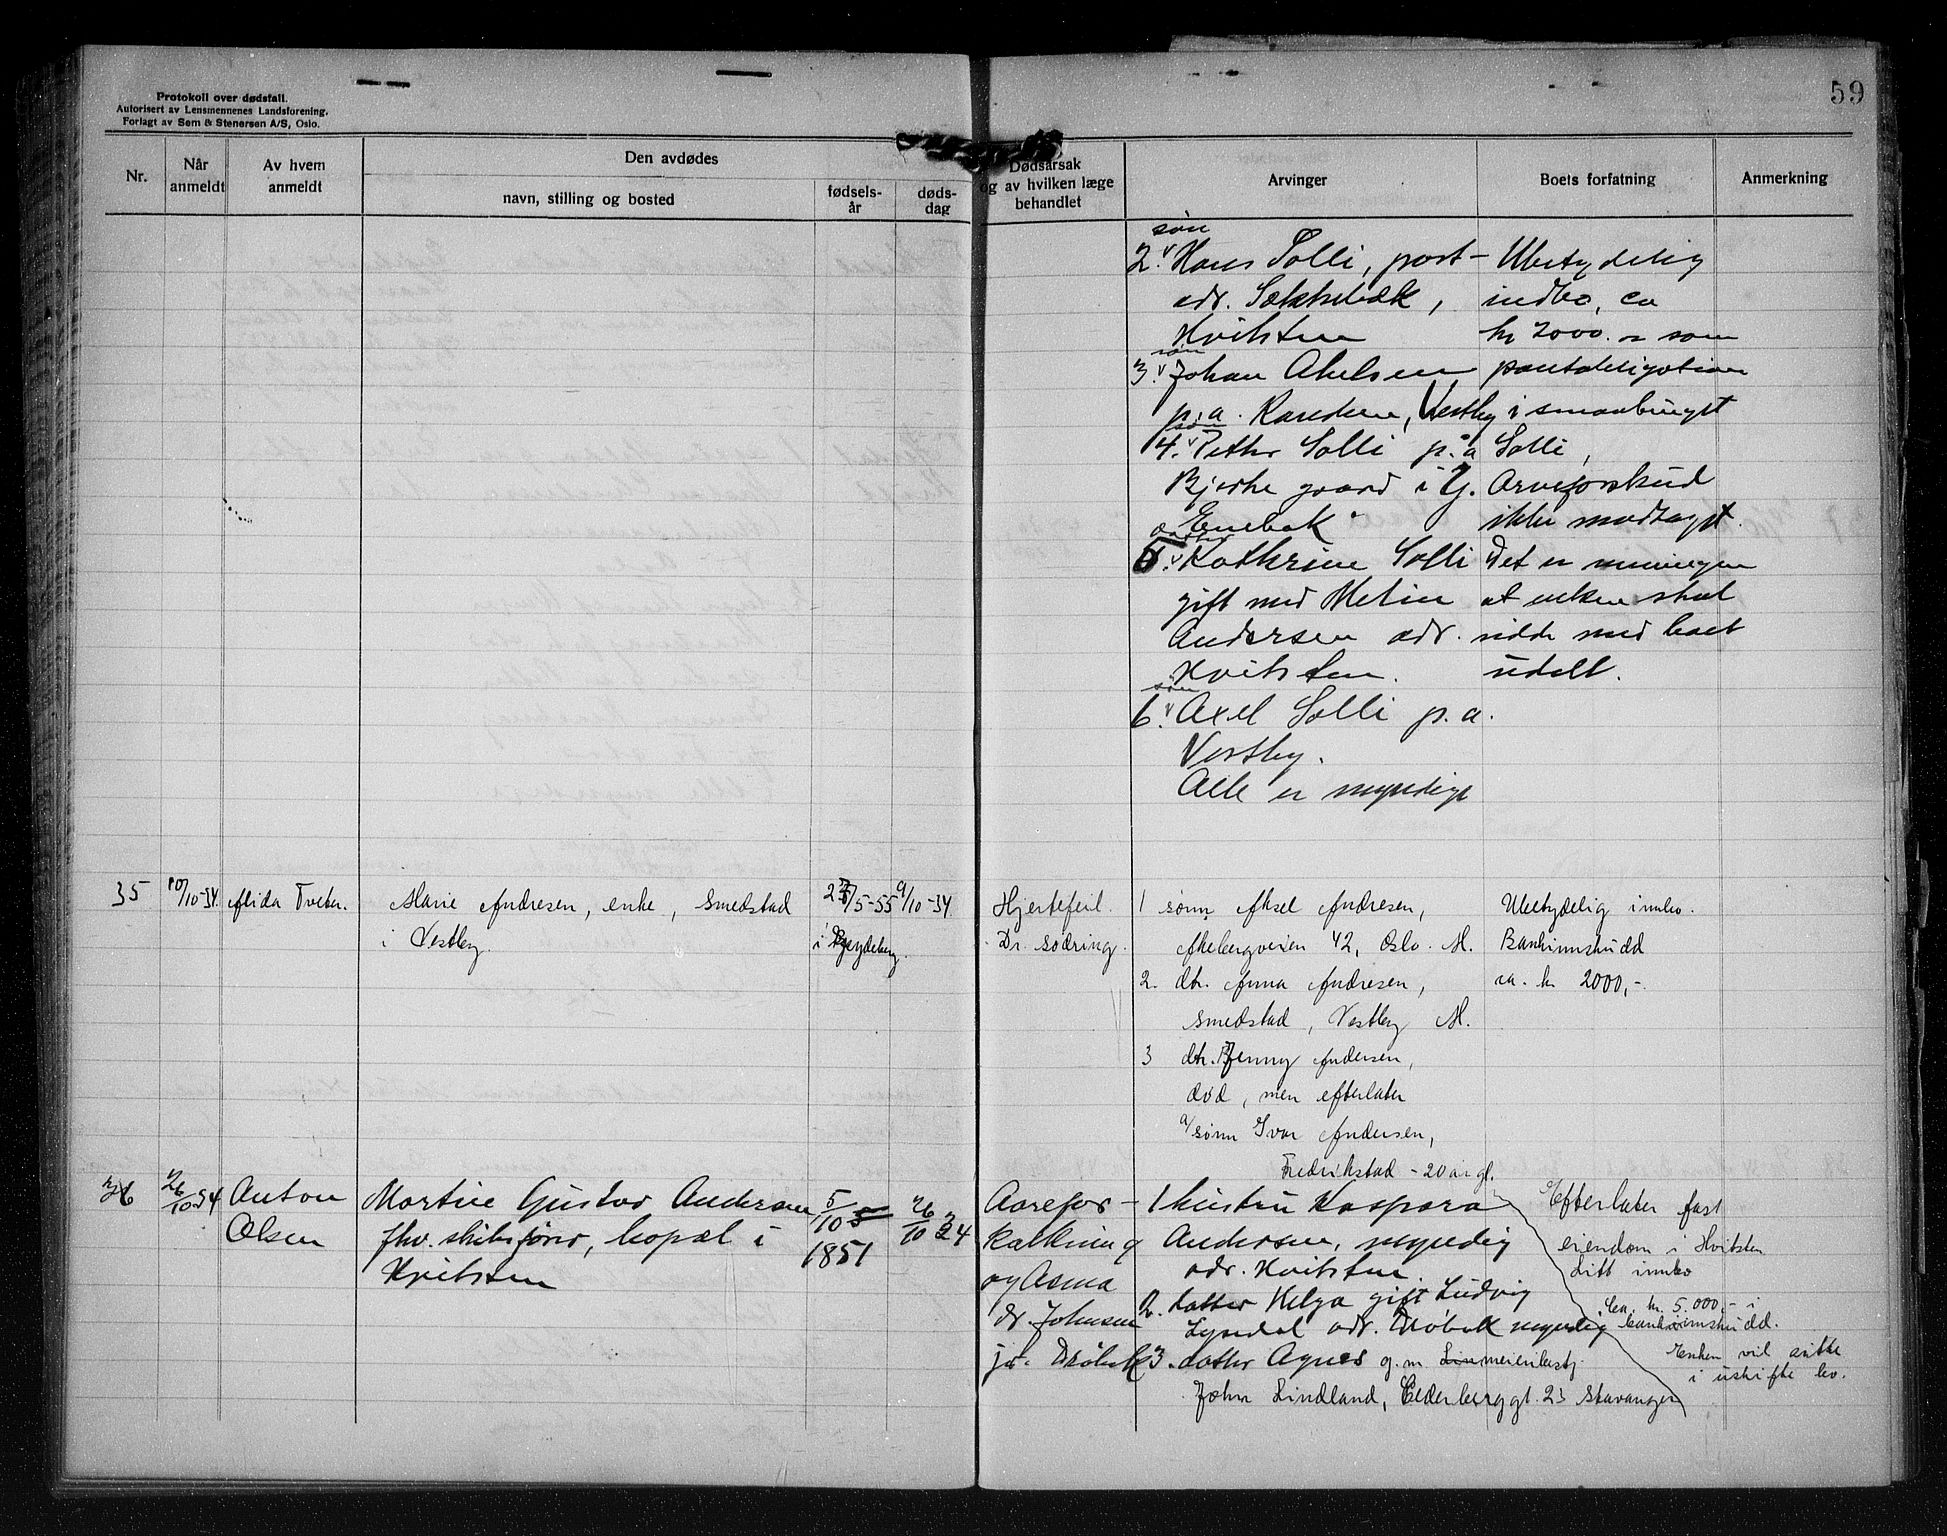 59
Protokoll over dødsfall.
Autorisert av Lensmennenes Landsforening.
Forlagt av Sem & Stenersen A/S, Oslo.
Nr.
Når anmeldt
Av hvem anmeldt
Den avdødes
navn, stilling og bosted
fødsels-
år
døds-
dag
Dødsårsak
og av hvilken læge
behandlet
Arvinger
Boets forfatning
Anmerkning
søn
2. Hans Solli, post-
adr. Sækkebæk,
Hvitsten
søn
3. Johan Akelsen
p.a. Vestby
søn
4. Petter Solli p.a
Bjerke gaard i Y.
Enebak
datter
5. Kathrine Solli
gift med Melin
Andersen adr.
Hvitsten.
søn
6. Axel Solli p.a.
Vestby.
Alle er myndige
Ubetydelig
indbo, ca
kr 2000.- som
pantobligation
i smaabruget
Solli,
Arveforskud
ikke modtaget.
Det er meningen
at enken skal
sidde med boet
udelt.
35
10/10-34.
Alida Tveter.
Marie Andresen, enke, Smedstad
i Vestby.
/5-55
i Spydeberg.
9/10-34
Hjertefeil.
Dr. Sødring.
1 sønn Aksel Andresen,
Akebergveien 42, Oslo. M.
2. dtr. Anna Andresen,
Smedstad, Vestby M.
3 dtr. Jenny Andersen,
død, men efterlater
a/ sønn Ivar Andersen,
Fredrikstad - 20 år gl.
Ubetydelig innbo.
Bankinnskudd
ca. kr 2000,-.
36
26/10 34
Anton
Olsen
Martin Gustav Andersen
fhv. skibsfører, bopæl i
Hvitsten
5/10
1851
26/10 34
Aarefor-
kalkning
og Asma
dr. Johnsen
jr. Drøbak
1 hustru Kaspara
Andersen, myndig
adr. Hvitsten.
2. datter Helga gift Ludvig
Lyndal adr. Drøbak myndig
3. datter Agnes g.m. meieribestj.
John Lindland, 23 Stavanger
Efterlater fast
eiendom i Hvitsten
Litt innbo
ca. kr. 5.000,- i
bankinnskudd.
Enken vil sitte
i uskifte bo.